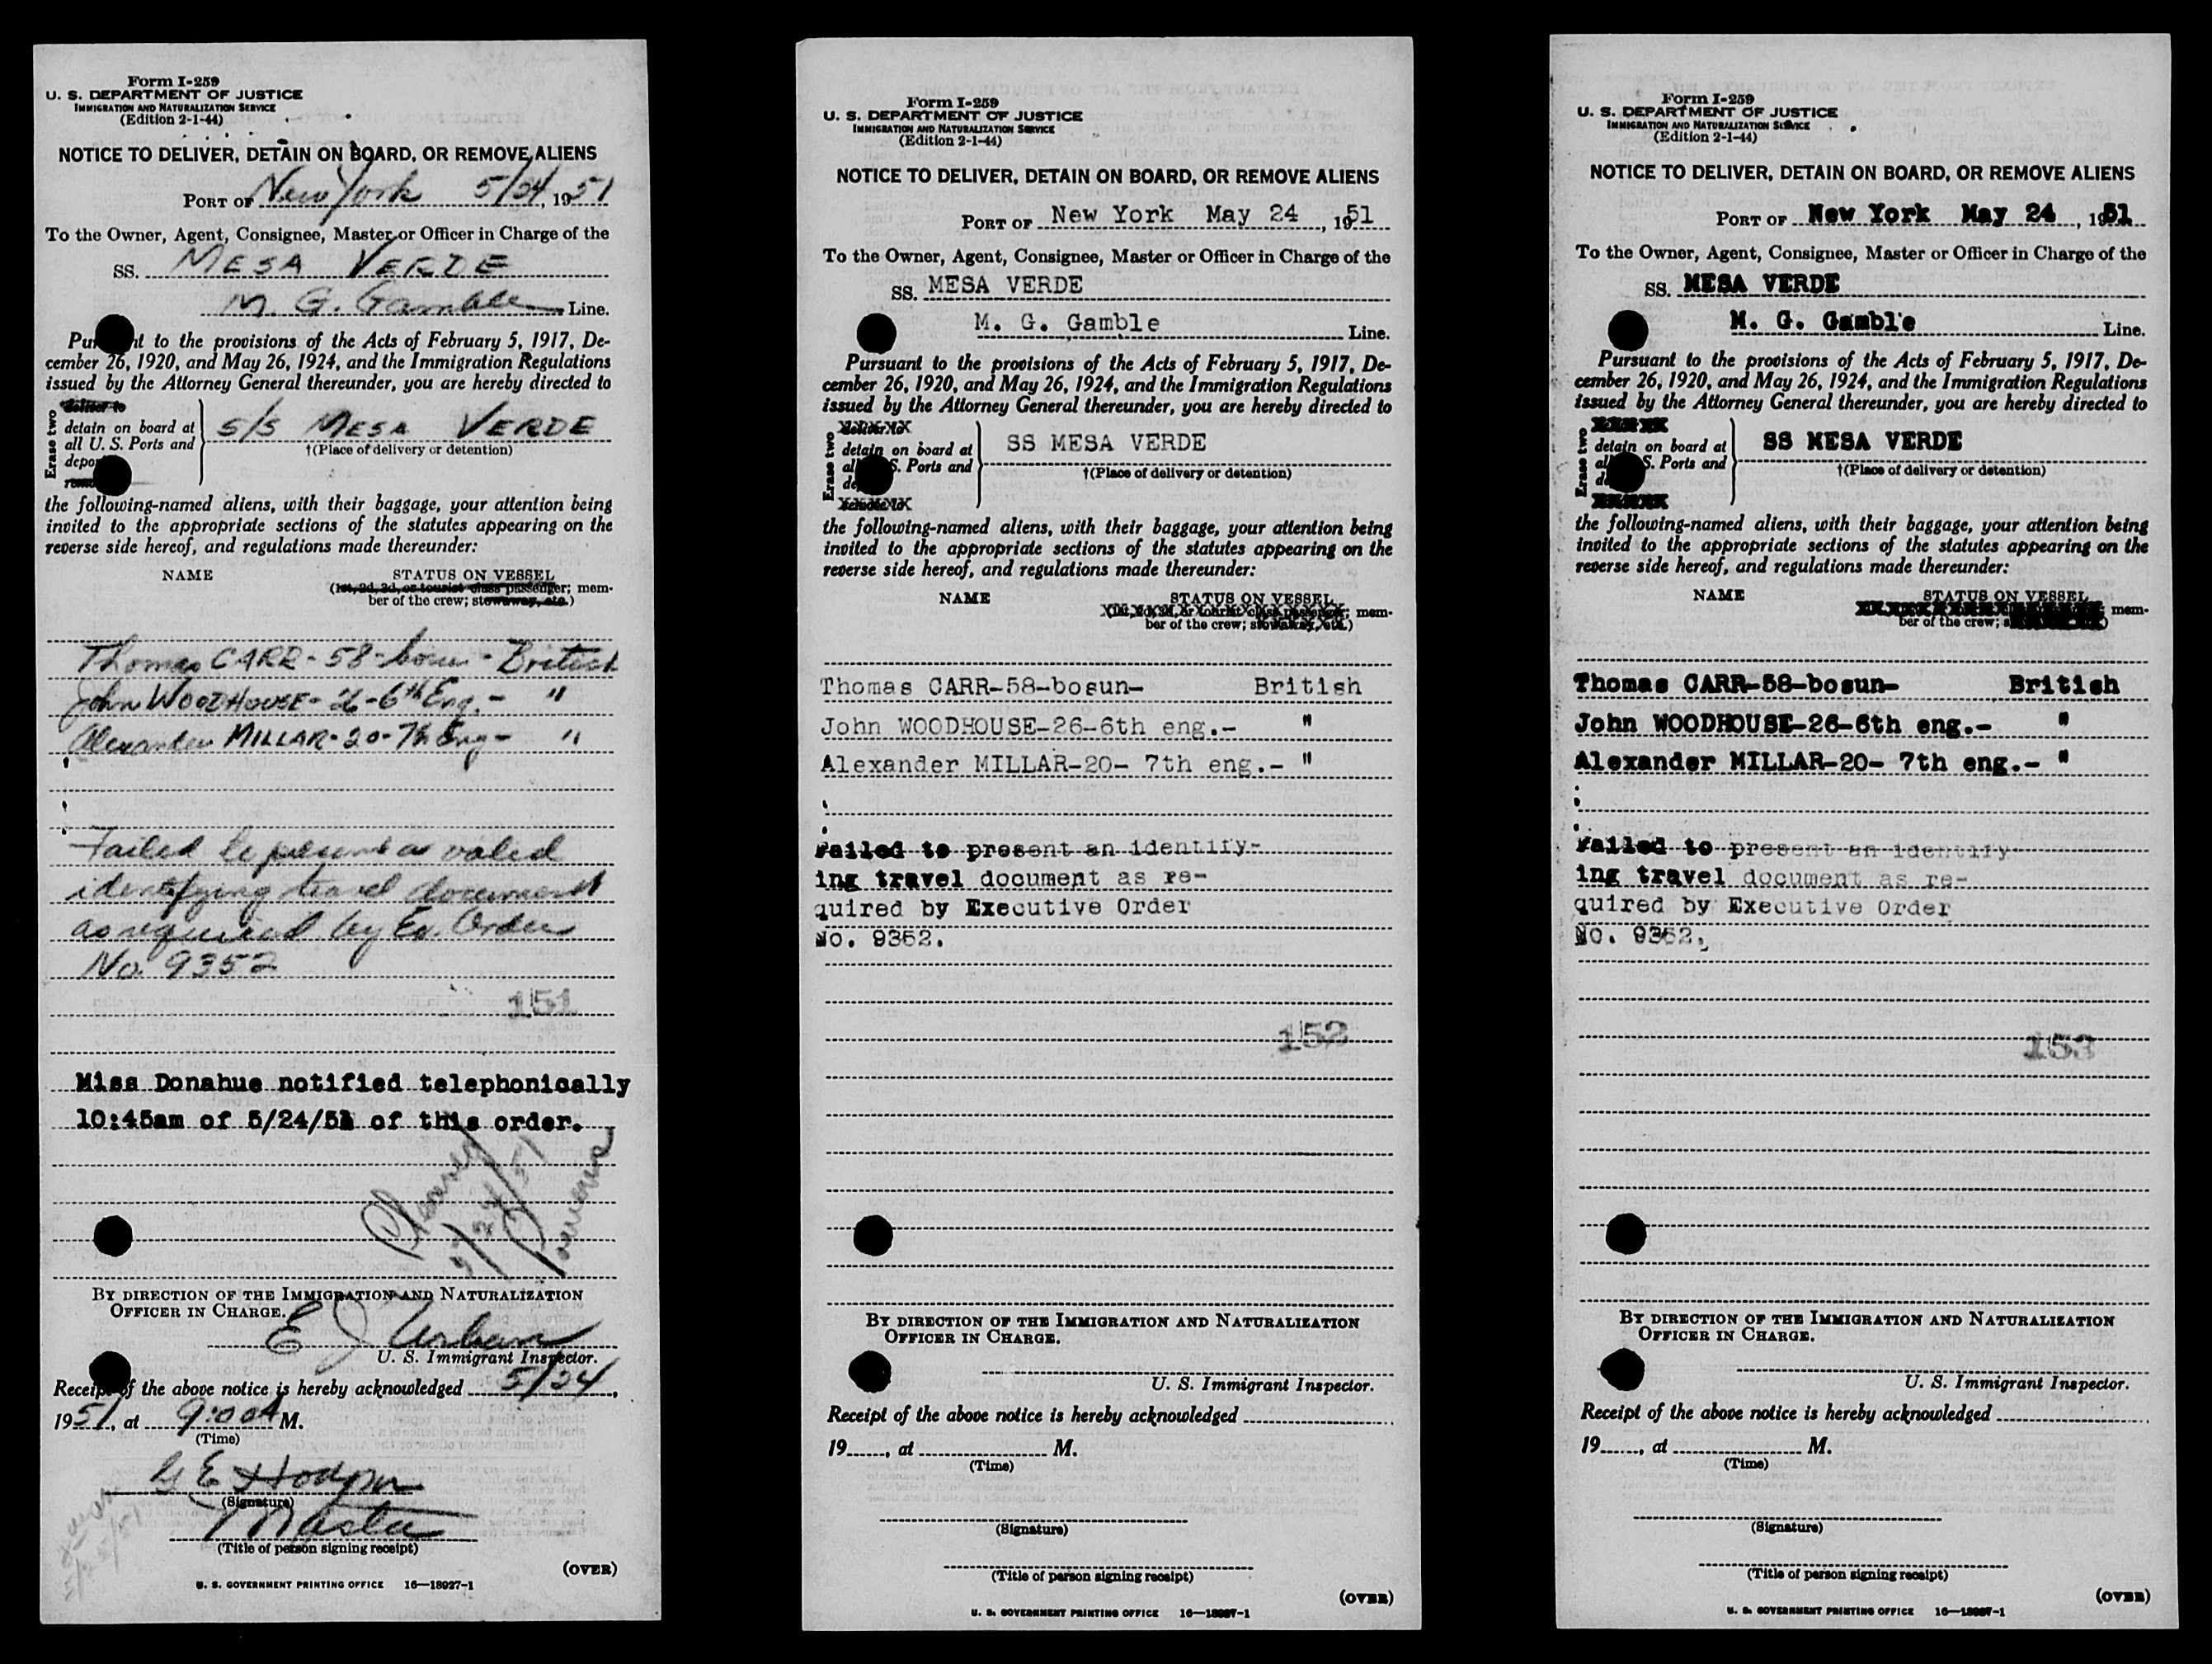 Form I-259
U. S. DEPARTMENT OF JUSTICE
IMMIGRATION AND NATURALIZATION SERVICE
(Edition 2-1-44)
NOTICE TO DELIVER, DETAIN ON BOARD, OR REMOVE ALIENS
PORT OF New York 5/24, 1951
To the Owner, Agent, Consignee, Master or Officer in Charge of the
SS. MESA VERDE
M. G. Gamble Line.
Pursuant to the provisions of the Acts of February 5, 1917, De-
cember 26, 1920, and May 26, 1924, and the Immigration Regulations
issued by the Attorney General thereunder, you are hereby directed to
Erase two
deliver to
detain on board at
all U. S. Ports and
depo
remo
S/S MESA VERDE
†(Place of delivery or detention)
the following-named aliens, with their baggage, your attention being
invited to the appropriate sections of the statutes appearing on the
reverse side hereof, and regulations made thereunder:
NAME STATUS ON VESSEL
(1st, 2d, 3d, or tourist class passenger; mem-
ber of the crew; stowaway, etc.)
Thomas CARR - 58 - bosun - British
John WOODHOUSE - 26 - 6th Eng. - "
Alexander MILLAR - 20 - 7th Eng - "
Failed to present a valid
identifying travel document
as required by Ex. Order
No. 9352
151
Miss Donahue notified telephonically
10:45am of 5/24/51 of this order.
5/24/51
BY DIRECTION OF THE IMMIGRATION AND NATURALIZATION
OFFICER IN CHARGE.
E J Urban
U. S. Immigrant Inspector.
Receipt of the above notice is hereby acknowledged 5/24,
1951, at 9:00 A M.
(Time)
G E Hodgson
(Signature)
Master
(Title of person signing receipt)
(OVER)
U. S. GOVERNMENT PRINTING OFFICE 16—18927-1
Form I-259
U. S. DEPARTMENT OF JUSTICE
IMMIGRATION AND NATURALIZATION SERVICE
(Edition 2-1-44)
NOTICE TO DELIVER, DETAIN ON BOARD, OR REMOVE ALIENS
PORT OF New York May 24, 1951
To the Owner, Agent, Consignee, Master or Officer in Charge of the
SS. MESA VERDE
M. G. Gamble Line.
Pursuant to the provisions of the Acts of February 5, 1917, De-
cember 26, 1920, and May 26, 1924, and the Immigration Regulations
issued by the Attorney General thereunder, you are hereby directed to
Erase two
deliver to
detain on board at
al S. Ports and
de
remove
SS MESA VERDE
†(Place of delivery or detention)
the following-named aliens, with their baggage, your attention being
invited to the appropriate sections of the statutes appearing on the
reverse side hereof, and regulations made thereunder:
NAME STATUS ON VESSEL
(1st, 2d, 3d, or tourist class passenger; mem-
ber of the crew; stowaway, etc.)
Thomas CARR-58-bosun- British
John WOODHOUSE-26-6th eng.- "
Alexander MILLAR-20- 7th eng.- "
Failed to present an identify-
ing travel document as re-
quired by Executive Order
No. 9352.
152
BY DIRECTION OF THE IMMIGRATION AND NATURALIZATION
OFFICER IN CHARGE.
U. S. Immigrant Inspector.
Receipt of the above notice is hereby acknowledged
19, at M.
(Time)
(Signature)
(Title of person signing receipt)
(OVER)
U. S. GOVERNMENT PRINTING OFFICE 16—18927-1
Form I-259
U. S. DEPARTMENT OF JUSTICE
IMMIGRATION AND NATURALIZATION SERVICE
(Edition 2-1-44)
NOTICE TO DELIVER, DETAIN ON BOARD, OR REMOVE ALIENS
PORT OF New York May 24, 1951
To the Owner, Agent, Consignee, Master or Officer in Charge of the
SS. MESA VERDE
M. G. Gamble Line.
Pursuant to the provisions of the Acts of February 5, 1917, De-
cember 26, 1920, and May 26, 1924, and the Immigration Regulations
issued by the Attorney General thereunder, you are hereby directed to
Erase two
detain on board at
al S. Ports and
de
SS MESA VERDE
†(Place of delivery or detention)
the following-named aliens, with their baggage, your attention being
invited to the appropriate sections of the statutes appearing on the
reverse side hereof, and regulations made thereunder:
NAME STATUS ON VESSEL
mem-
ber of the crew;
Thomas CARR-58-bosun- British
John WOODHOUSE-26-6th eng.- "
Alexander MILLAR-20- 7th eng.- "
Failed to present an identify-
ing travel document as re-
quired by Executive Order
No. 9352.
153
BY DIRECTION OF THE IMMIGRATION AND NATURALIZATION
OFFICER IN CHARGE.
U. S. Immigrant Inspector.
Receipt of the above notice is hereby acknowledged
19, at M.
(Time)
(Signature)
(Title of person signing receipt)
(OVER)
U. S. GOVERNMENT PRINTING OFFICE 16—18927-1